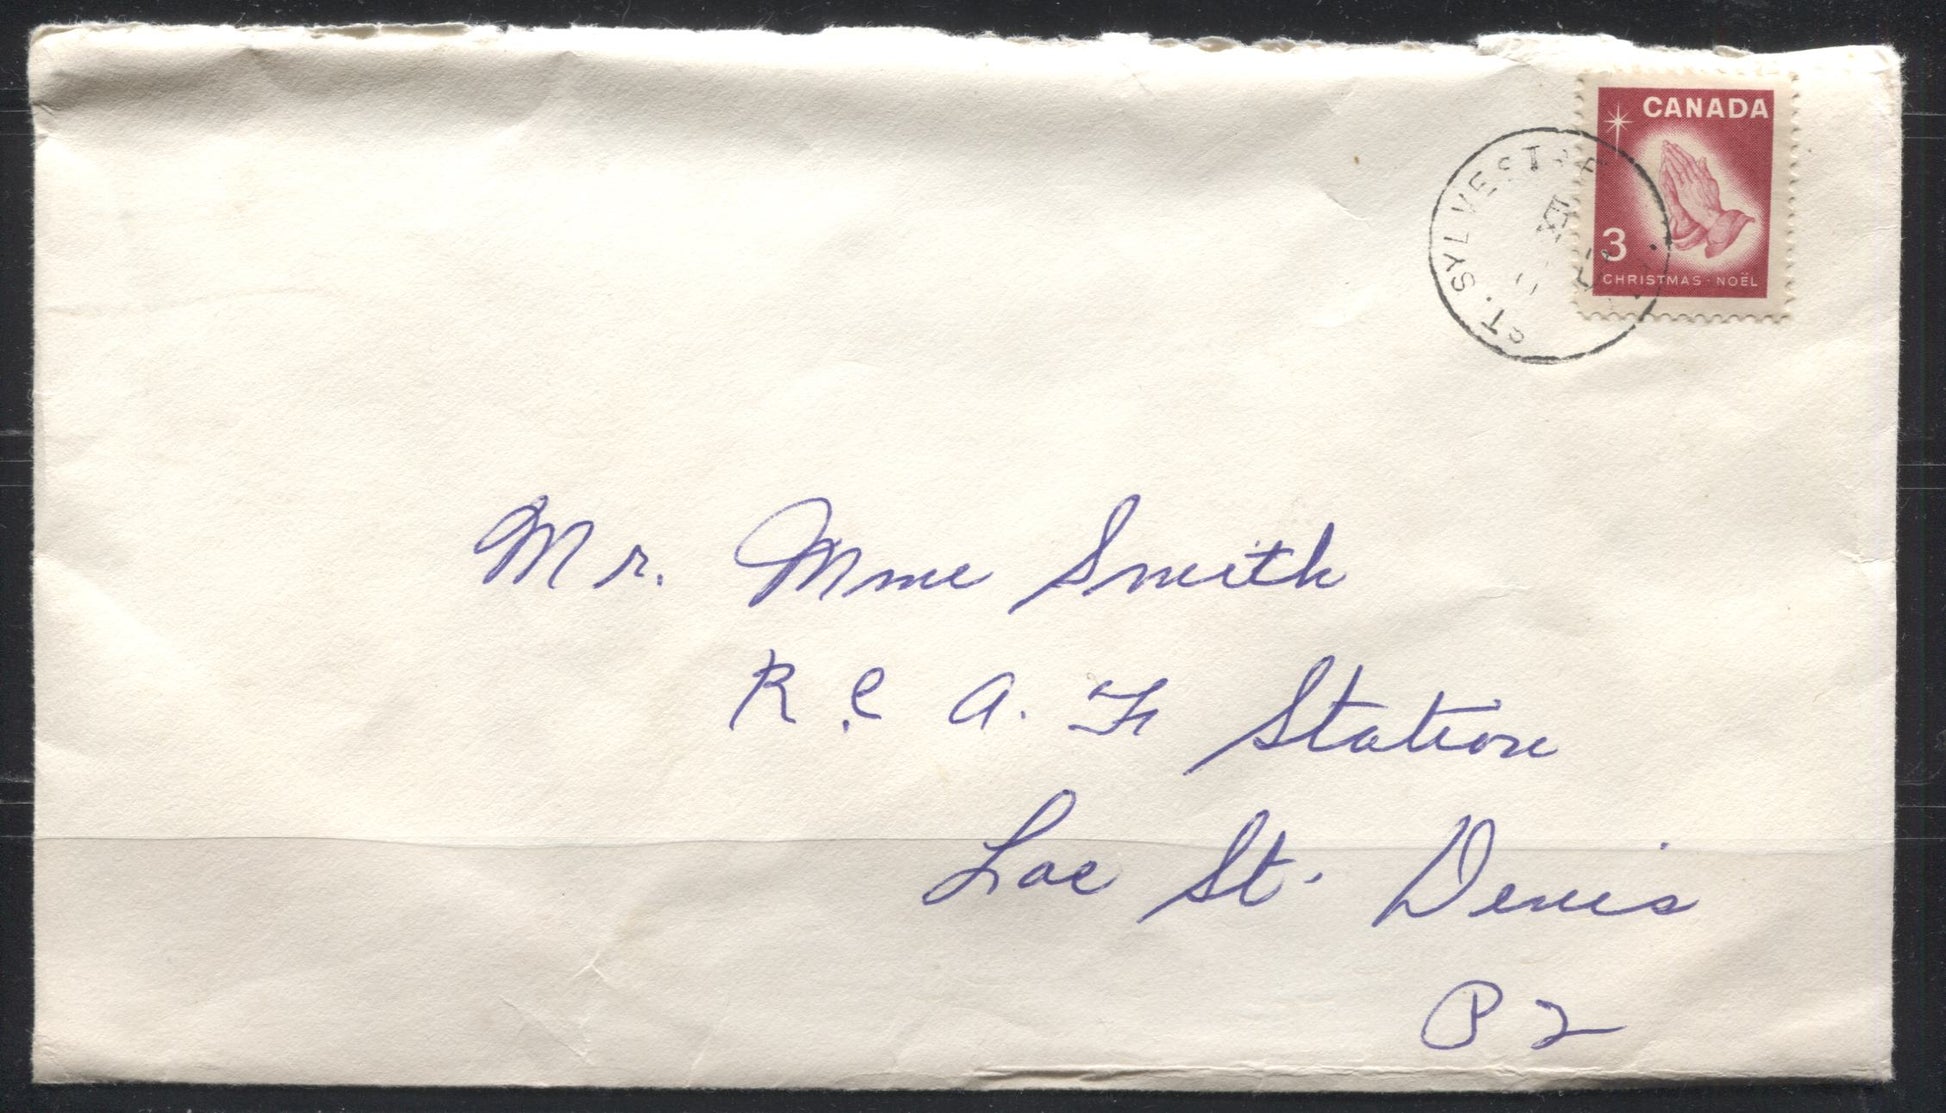 CANADA
3
CHRISTMAS · NOËL
ST. SYLVESTRE
Mr. Mme Smith
R.C A. F Station
Lac St. Denis
PQ